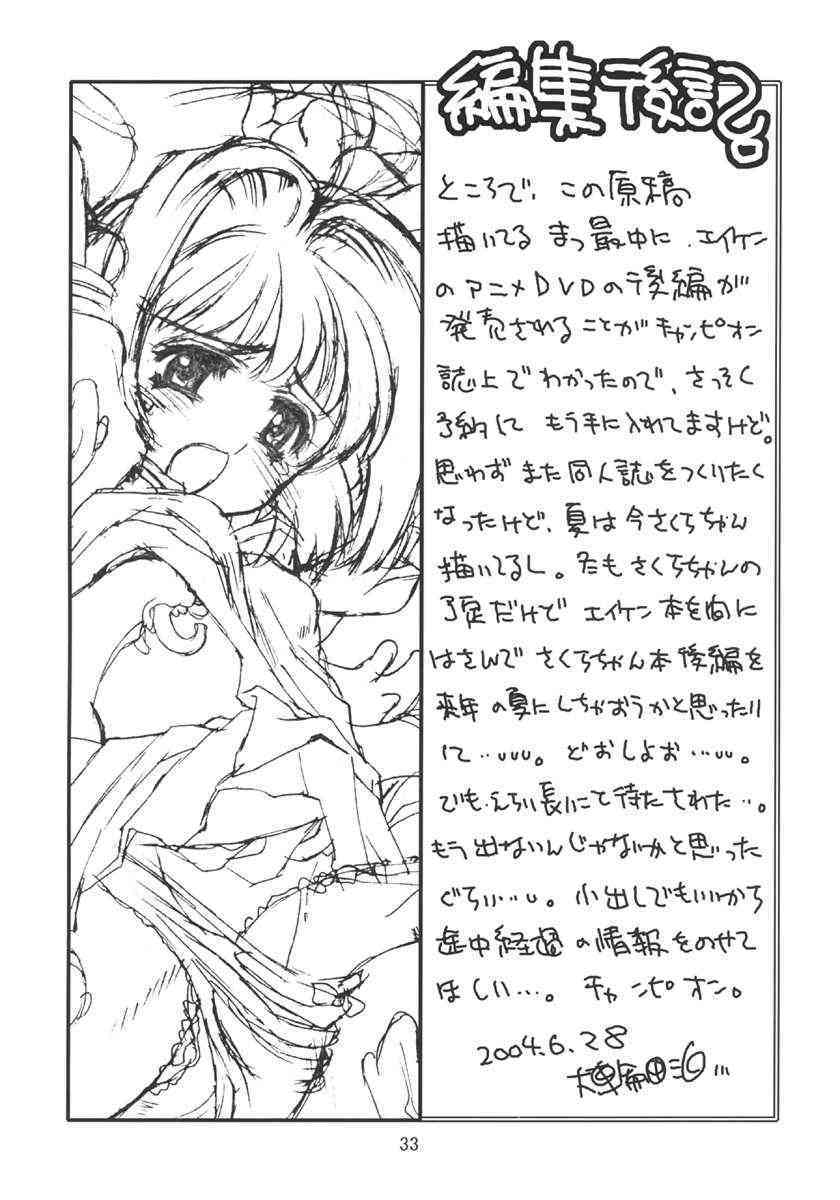 編集後記
ところで、この原稿
描いてる まっ最中に、エイケン
のアニメDVDの後編が
発売されることがチャンピオン
誌上でわかったので、さっそく
予約して もう手に入れてますけど。
思わず また同人誌をつくりたく
なったけど、夏は今さくらちゃん
描いてるし。冬もさくらちゃんの
予定だけど エイケン本を間に
はさんで さくらちゃん本後編を
来年の夏にしちゃおうかと思ったり
して…。どおしよお…。
でも、えらい長いこと待たされた…。
もう出ないんじゃないかと思った
ぐらい…。小出しでもいいから
途中経過の情報をのせて
ほしい…。チャンピオン。
2004.6.28
33